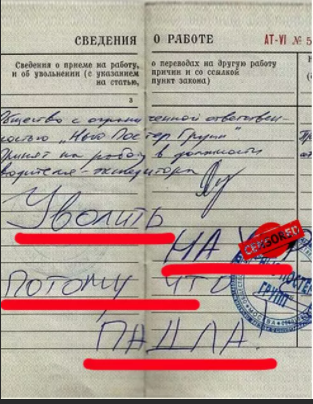 СВЕДЕНИЯ О РАБОТЕ АТ-VI № 5
Сведения о приеме на работу, о переводах на другую работу
и об увольнении (с указанием причин и со ссылкой
на статью, пункт закона)
3
Общество с ограниченной ответствен-
ностью „Нью Постер Групп"
Принят на работу в должности
водителя-экспедитора
Уволить
НА CENSORED
ПОТОМУ ЧТО
ПАДЛА!
ГРУПП